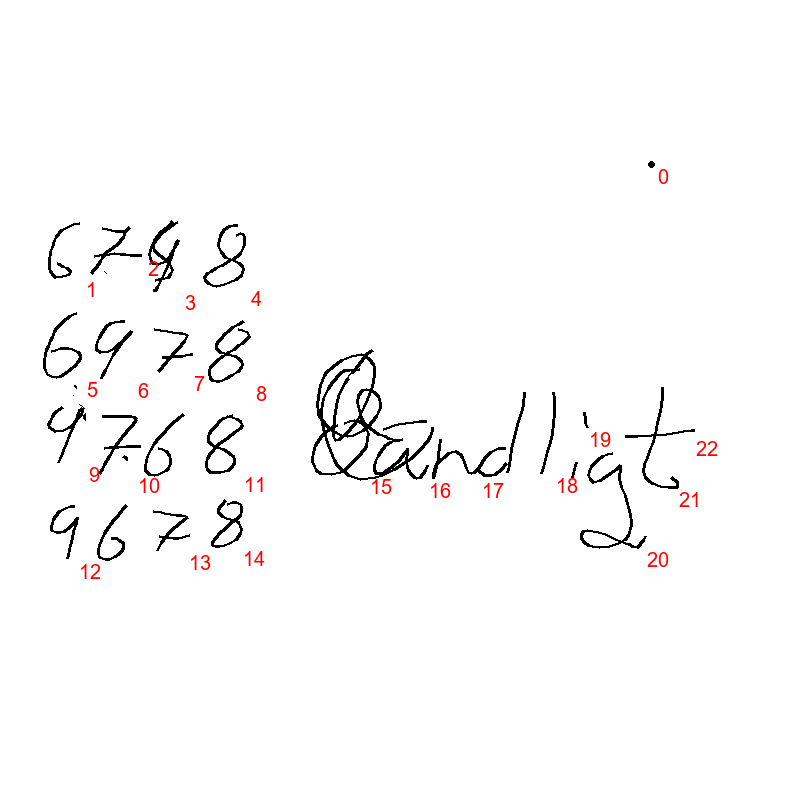 0
6798
1 2 3 4
6978
5 6 7 8
9768
9 10 11
9678
12 13 14
15 16 17 18 19 20 21 22